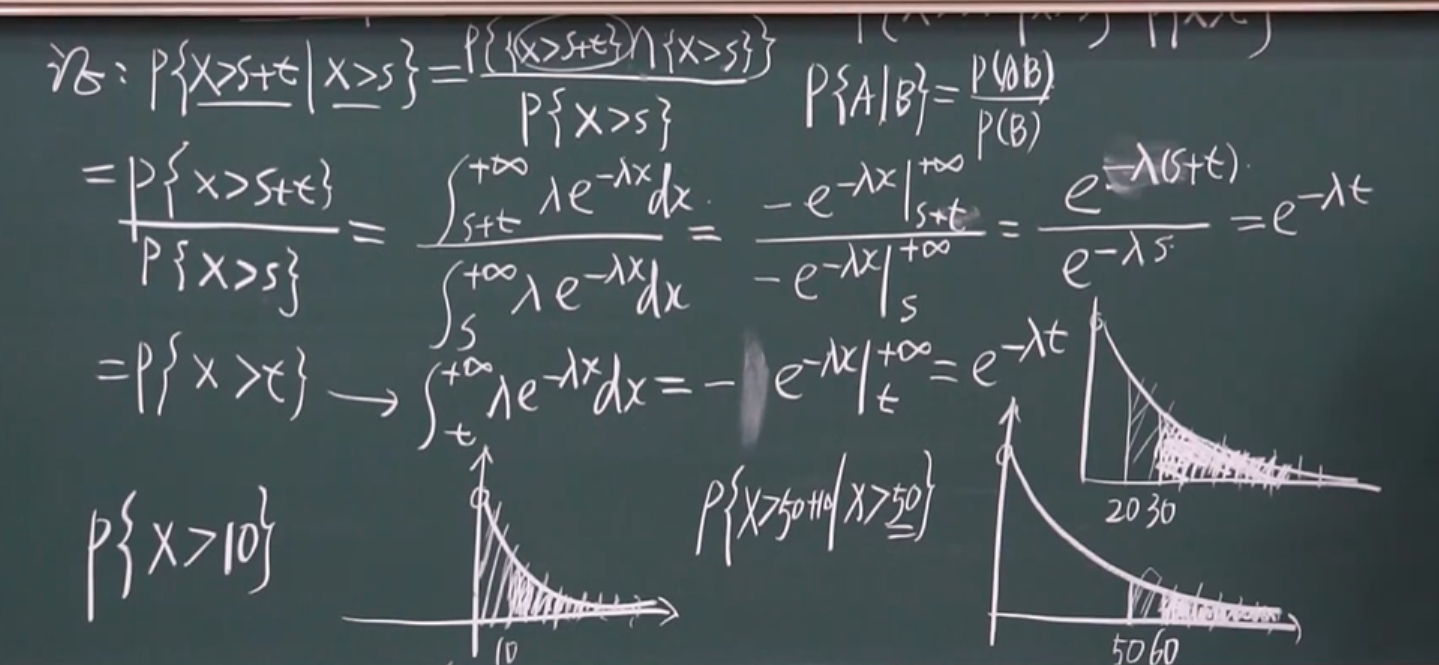 证: P{X>s+t | X>s} = P{{X>s+t}∩{X>s}} / P{X>s}    P{A|B} = P(AB) / P(B)
= P{X>s+t} / P{X>s} = ∫_{s+t}^{+∞} λe^{-λx}dx / ∫_{s}^{+∞} λe^{-λx}dx = -e^{-λx}|_{s+t}^{+∞} / -e^{-λx}|_{s}^{+∞} = e^{-λ(s+t)} / e^{-λs} = e^{-λt}
= P{X>t} → ∫_{t}^{+∞} λe^{-λx}dx = - e^{-λx}|_{t}^{+∞} = e^{-λt}
20 30
P{X>10}
10
P{X>50+10|X>50}
50 60